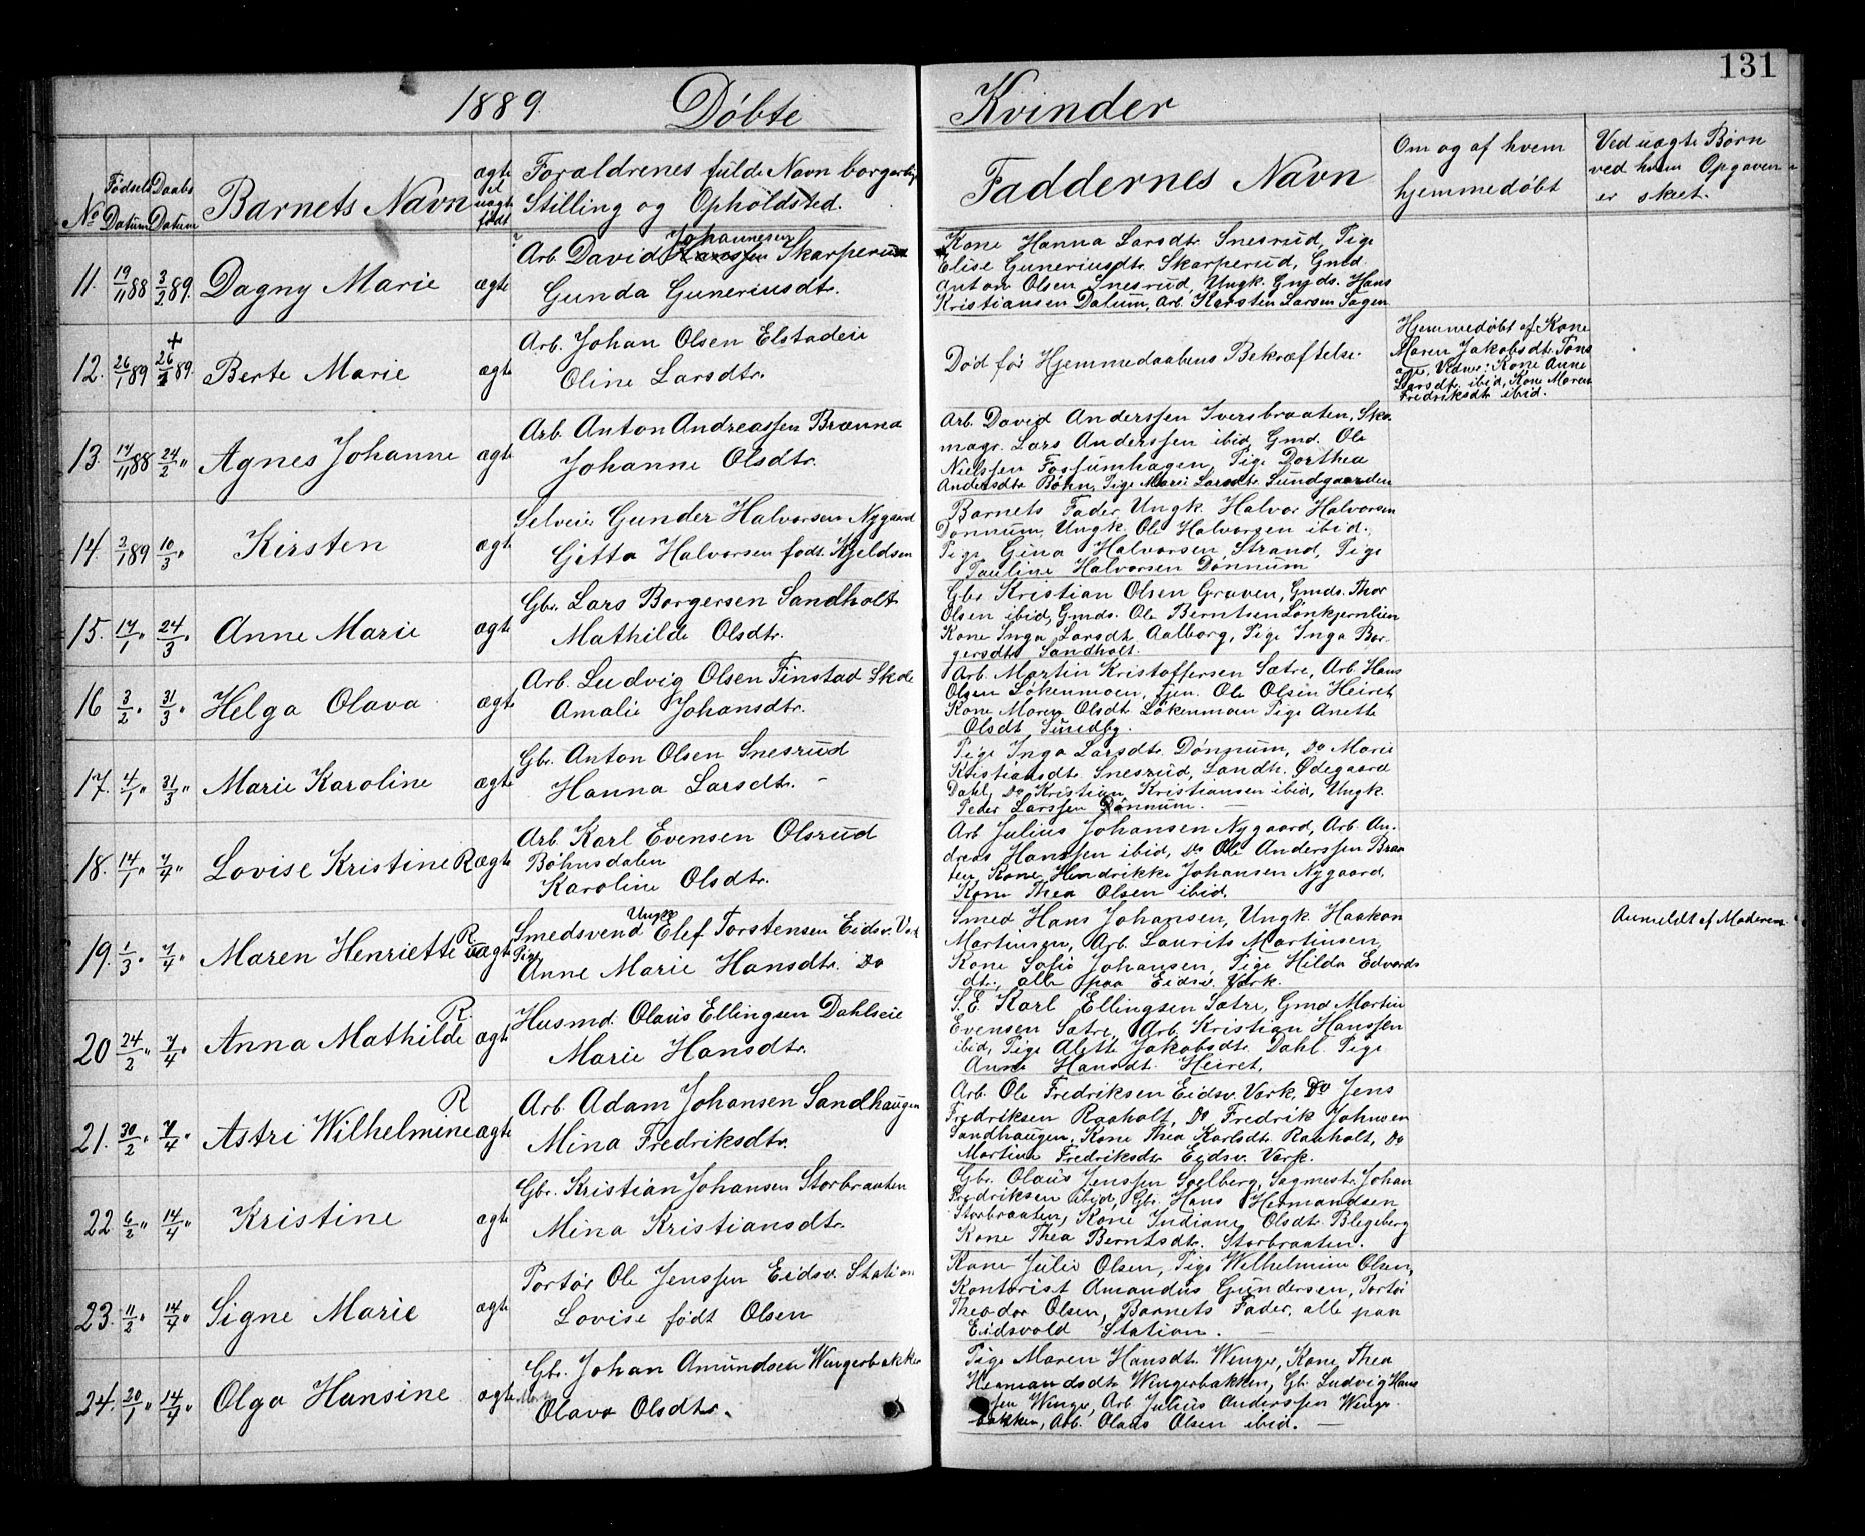 131
1889. Døbte Kvinder
No
Fødsels Datum
Daabs Datum
Barnets Navn
ægte el uægte født
Forældrenes fulde Navn borgerlige
Stilling og Opholdsted.
Faddernes Navn
Om og af hvem
hjemmedøbt
Ved uægte Børn
ved hvem Opgaven
er skeet.
11. 19/11 88 3/2 89. Dagny Marie ægte
Arb. David Hanssen Johannesen Skarperud
Gunda Guneriusdtr.
Kone Hanna Larsdtr. Snesrud, Pige
Elise Guneriusdtr. Skarperud, Gmd.
Anton Olsen Snesrud, Ungk. Gmds. Hans
Kristiansen Datum, Arb. Karsten Larsen Sagen
12. 26/1 89 + 26/1 89. Berte Marie ægte
Arb. Johan Olsen Elstadeie
Oline Larsdtr.
Død før Hjemmedaabens Bekræftelse.
Hjemmedøbt af Kone
Maren Jakobsdtr. Tøns
age, Vidner: Kone Anne
Larsdtr. ibid, Kone Maren
Fredriksdtr ibid.
13. 14/11 88 24/2 " Agnes Johanne ægte
Arb. Anton Andreassen Brænna
Johanne Olsdtr.
Arb. David Anderssen Iversbraaten, Sko-
magr. Lars Anderssen ibid, Gmd. Ole
Nielssen Fossumhagen, Pige Dorthea
Andersdtr Bøhn, Pige Marie Larsdtr. Sundgaarden
14. 2/1 89 10/3 " Kirsten ægte
Selveier Gunder Halvorsen Nygaard
Gitta Halvorsen født Kjeldsen
Barnets Fader, Ungk. Halvor Halvorsen
Dønnum, Ungk. Ole Halvorsen ibid.
Pige Gina Halvorsen, Strand, Pige
Pauline Halvorsen Dønnum
15. 14/1 " 24/3 " Anne Marie ægte
Gbr. Lars Borgersen Sandholt
Mathilde Olsdtr.
Gbr Kristian Olsen Graven, Gmds. Thor
Olsen ibid, Gmds. Ole Berntsen Lønkjernlien
Kone Inga Larsdtr Aalborg, Pige Inga Bor-
gersdtr Sandholt.
16 3/2 " 31/3 " Helga Olava ægte
Arb. Ludvig Olsen Finstad Skole
Amalie Johansdtr.
Arb. Martin Kristoffersen Sætre, Arb. Hans
Olsen Løkenmoen, Tjen. Ole Olsen Heiret
Kone Maren Olsdtr Løkenmoen Pige Anette
Olsdt. Sundby.
17. 4/1 " 31/3 " Marie Karoline ægte
Gbr. Anton Olsen Snesrud
Hanna Larsdtr.
Pige Inga Larsdtr Dønnum, Do Marie
Kristiansdtr. Snesrud, Landh. Ødegaard
Dahl, Do Kristian Kristiansen ibid, Ungk.
Peder Larssen Dønnum.
18. 14/1 " 7/4 " Lovise Kristine R ægte
Arb. Karl Evensen Olsrud
Bøhnsdalen
Karoline Olsdtr.
Arb. Julius Johansen Nygaard, Arb. An-
dreas Hanssen ibid, Do Ole Anderssen Braa
ten, Kone Hendrikke Johansen Nygaard,
Kone Thea Olsen ibid.
19. 1/3 " 7/4 " Maren Henriette R uægte
Smedsvend Ungk Elef Torstensen Eidsv. Værk
Pige
Anne Marie Hansdtr. Do
Smed Hans Johansen, Ungk. Haakon
Martinsen, Arb. Laurits Martinsen,
Kone Sofie Johansen, Pige Hilda Edvards
dtr., alle paa Eidsv. Værk.
Anmeldt af Moderen
20 24/2 " 7/4 " Anna Mathilde R. ægte
Husmd. Olaus Ellingsen Dahlseie
Marie Hansdtr.
S. E. Karl Ellingsen Sætre, Gmd Martin
Evensen Sætre, Arb. Kristian Hanssen
ibid, Pige Alette Jakobsdtr. Dahl. Pige
Anne Hansdt. Heiret.
21. 20/2 " 7/4 " Astri Wilhelmine R ægte
Arb. Adam Johansen Sandhaugen
Mina Fredriksdtr.
Arb. Ole Fredriksen Eidsv. Værk, Do Jens
Fredriksen Raaholt, Do Fredrik Johnsen
Sandhaugen, Kone Thea Karlsdt. Raaholt, Do
Martine Fredriksdtr Eidsv. Værk.
22 6/2 " 14/4 " Kristine ægte
Gbr. Kristian Johansen Storbraaten
Mina Kristiansdtr.
Gbr. Olaus Jenssen Soelberg, Sagmestr. Johan
Fredriksen ibid, Gbr. Hans Hermandsen
Storbraaten, Kone Indiane Olsdtr. Blegeberg
Kone Thea Berntsdtr. Storbraaten.
23. 11/2 " 14/4 " Signe Marie ægte
Portør Ole Jenssen Eidsv. Station
Lovise født Olsen
Kone Julie Olsen, Pige Wilhelmine Olsen,
Kontorist Amandus Gundersen, Portør
Theodor Olsen, Barnets Fader, alle paa
Eidsvold Station.
24. 20/1 " 14/4 " Olga Hansine ægte
Gbr. Johan Amundsen Wingerbakken
Olava Olsdtr.
Pige Maren Hansdtr. Winger, Kone Thea
Hermandsdtr Wingerbakken, Gbr Ludvig Hans
sen Winger, Arb. Julius Anderssen Winger-
bakken, Arb. Olaus Olsen ibid.